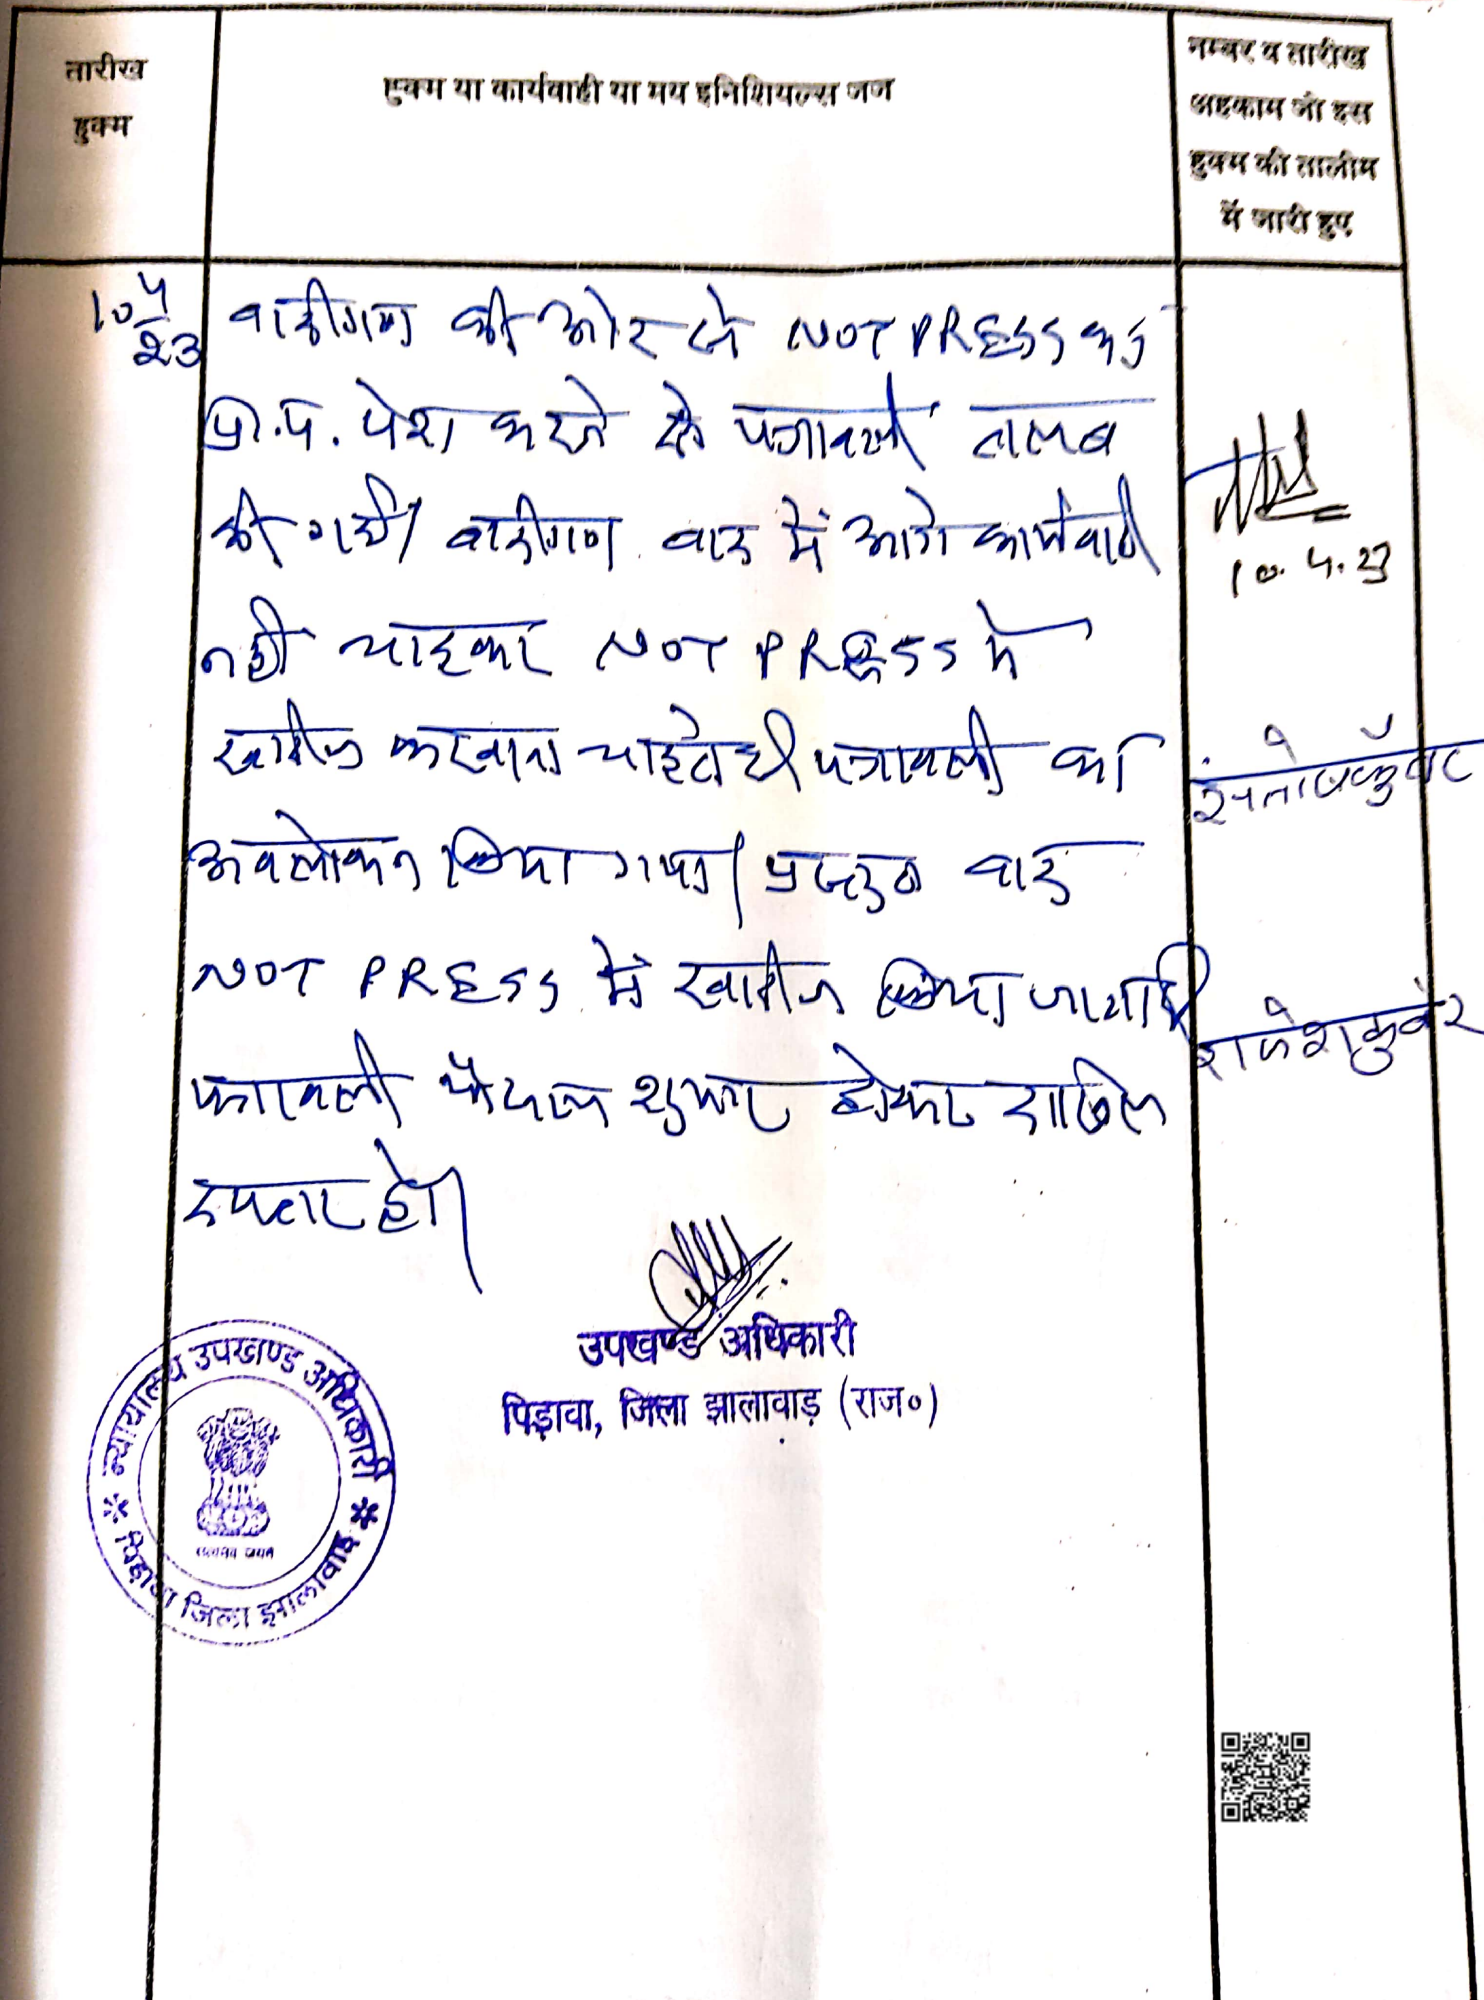 तारीख
हुक्म
हुक्म या कार्यवाही या मय इनिशियल्स जज
नम्बर व तारीख
अहकाम जो इस
हुक्म की तालीम
में जारी हुए
10/4/23
वादीगण की ओर से NOT PRESS का
प्रा.प. पेश करने से पत्रावली तलब
की गयी। वादीगण वाद में आगे कार्यवाही
नही चाहकर NOT PRESS मे
खारीज करवाना चाहते है। पत्रावली का
अवलोकन किया गया। प्रस्तुत वाद
NOT PRESS में खारीज किया जाता है
पत्रावली फैसल शुमार होकर दाखिल
दफ्तर हो।
10.4.23
संतोषकुँवर
राजेशकुवेर
उपखण्ड अधिकारी
पिड़ावा, जिला झालावाड़ (राज०)
न्यायालय उपखण्ड अधिकारी
सत्यमेव जयते
पिड़ावा जिला झालावाड़